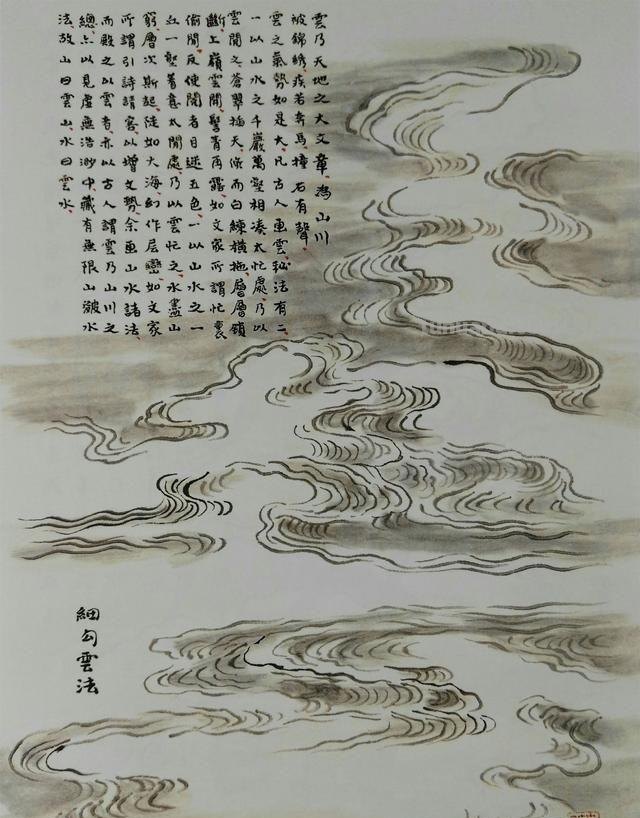 雲乃天地之大文章為山川
被錦綉疾若奔馬撞石有聲
雲之氣勢如是大凡古人画雲秘法有二
一以山水之千巖萬壑相湊太忙處乃以
雲閒之蒼翠插天倏而白練橫拖層層鎖
斷上嶺雲開髻青再露如文家所謂忙裏
偷閒反使閱者目迷五色一以山水之一
丘一壑著意太閒處乃以雲忙之水盡山
窮層次斯起陡如大海幻作层巒如文家
所謂引詩請客以增文勢余画山水諸法
而殿之以雲者亦以古人謂雲乃山川之
總亦以見虛無浩渺中藏有無限山皴水
法故山曰雲山水曰雲水
細勾雲法